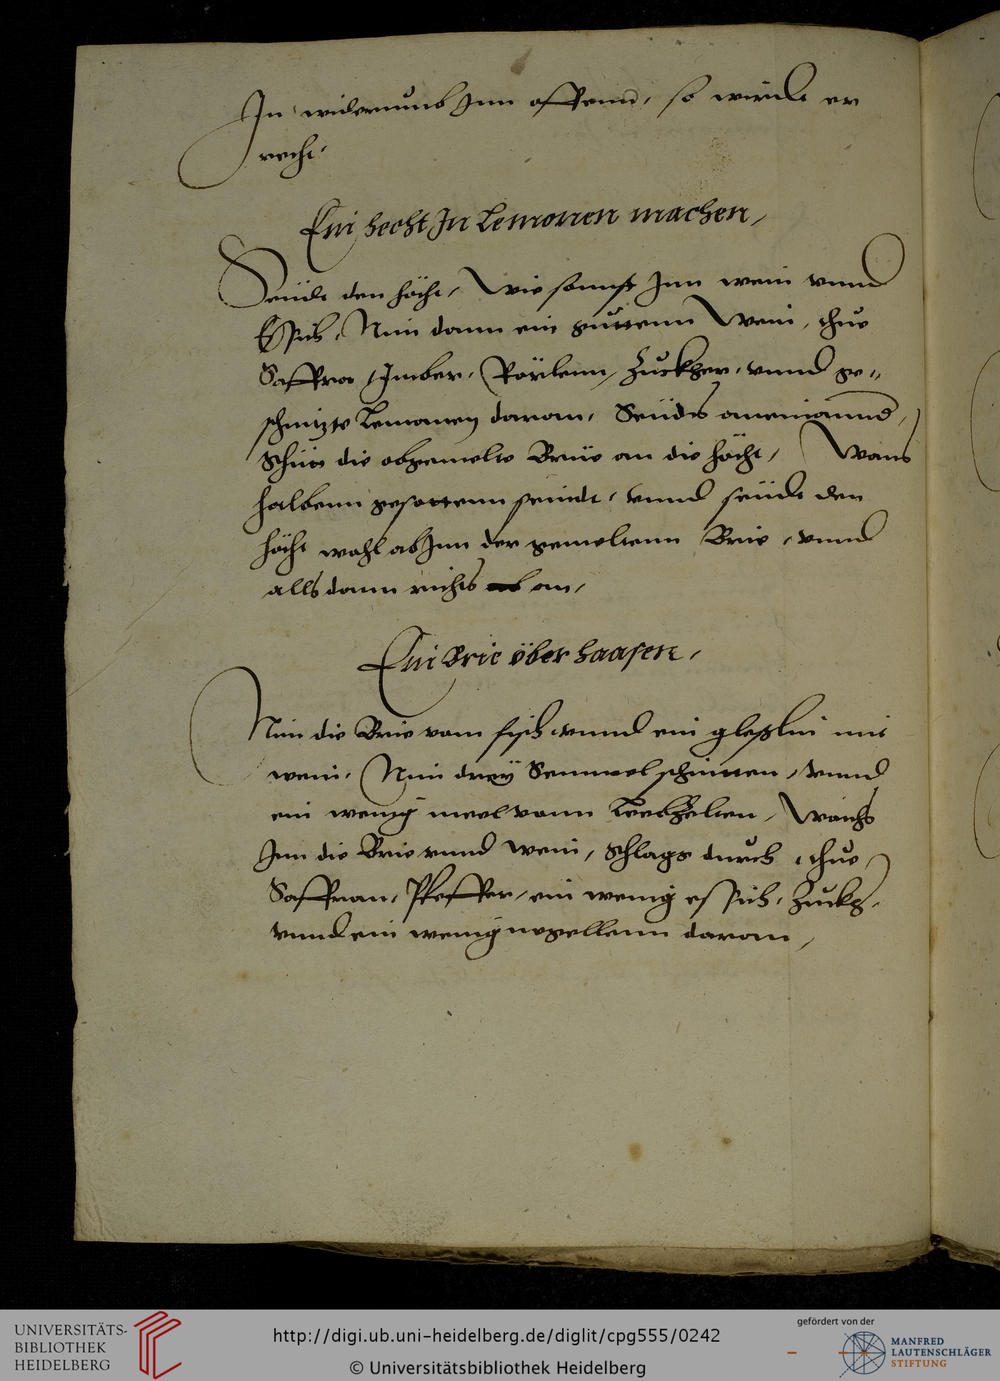 In widerumb Inn offenn, so wirdt er
recht.
Ein hecht In Lemonen machen,
Seüdt den höcht, Wie sonnst Inn wein vnnd
Essich, Nim dann ein guttenn Wein, thue
Saffra, Imber, Rörlenn, Zuckher, vnnd ge„
schnizte Lemonen daran, Seüdts aneinannd,
Schüt die obgemelte Brüe an die höcht, Wans
halbenn gesottenn seindt, vnnd seüdt den
höcht wohl ab Inn der gemeltenn Brie, vnnd
alls dann richts an,
Ein Brie über haasen,
Nim die Brie vom fisch vnnd ein gleßlin mit
wein, Nim drey Semmel schnitten, vnnd
ein wenig meel vonn Leebzelten, Waichs
Inn die Brie vnnd wein, Schlags durch, thue
Saffran, Pfeffer, ein wenig essich, Zuckh,
vnnd ein wenig negellenn daran,
UNIVERSITÄTS-
BIBLIOTHEK
HEIDELBERG
http://digi.ub.uni-heidelberg.de/diglit/cpg555/0242
© Universitätsbibliothek Heidelberg
gefördert von der
MANFRED
LAUTENSCHLÄGER
STIFTUNG